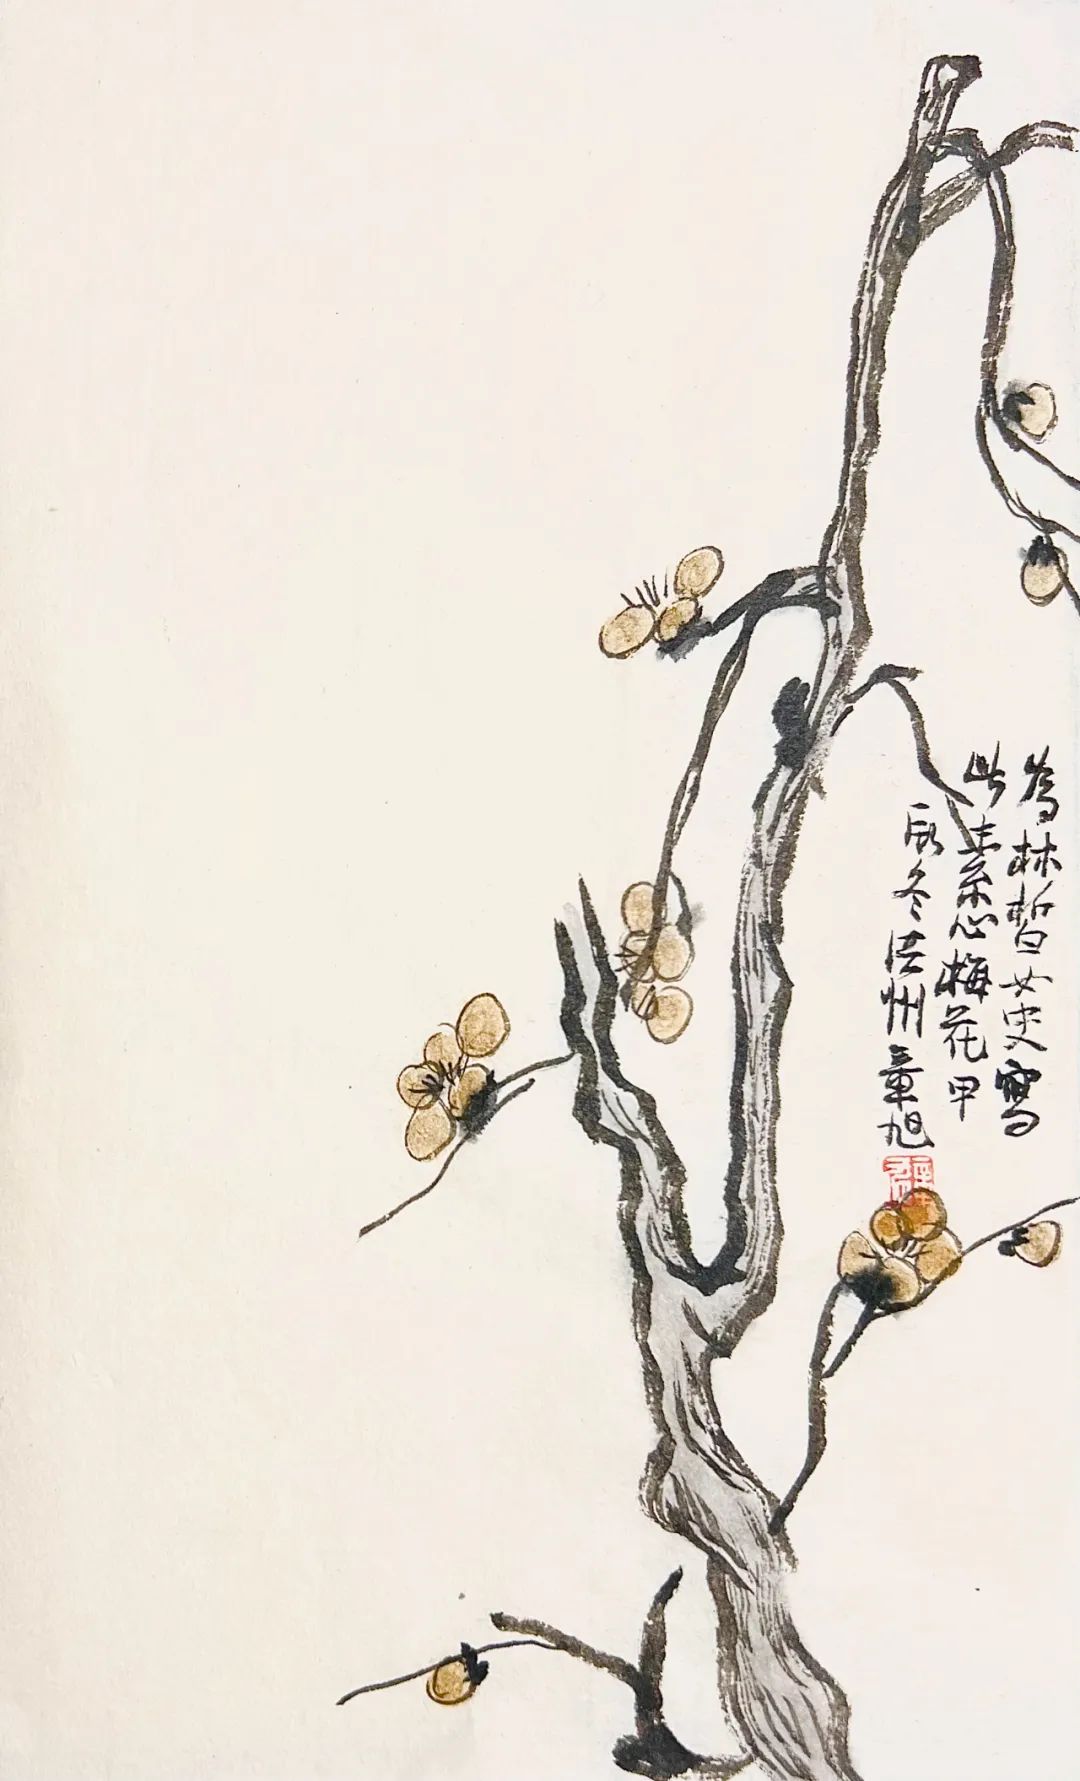 為林皙女史寫
此素心梅花甲
辰冬洪州章旭